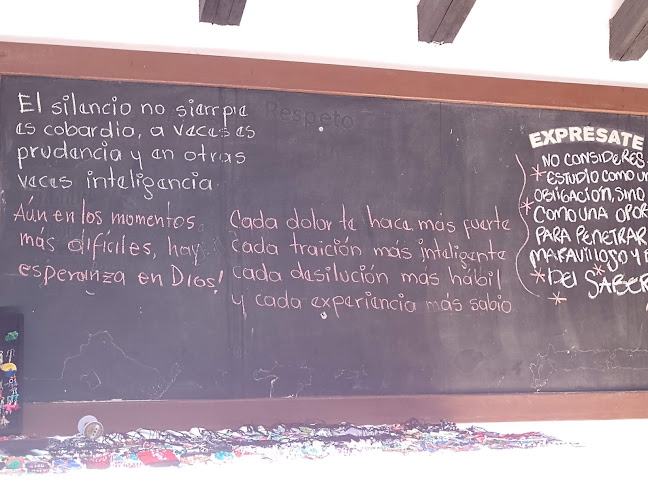 El silencio no siempre
es cobardia, a veces es
prudencia y en otras
veces inteligencia.
Aún en los momentos
más difíciles, hay
esperanza en Dios!
Respeto
Cada dolor te hace más fuerte
cada traición más inteligente
cada desilución más hábil
y cada experiencia más sabio
EXPRÉSATE
NO CONSIDERES
ESTUDIO COMO
OBLIGACIÓN, SINO
COMO UNA
PARA PENETRAR
MARAVILLOSO Y
DEL SABER